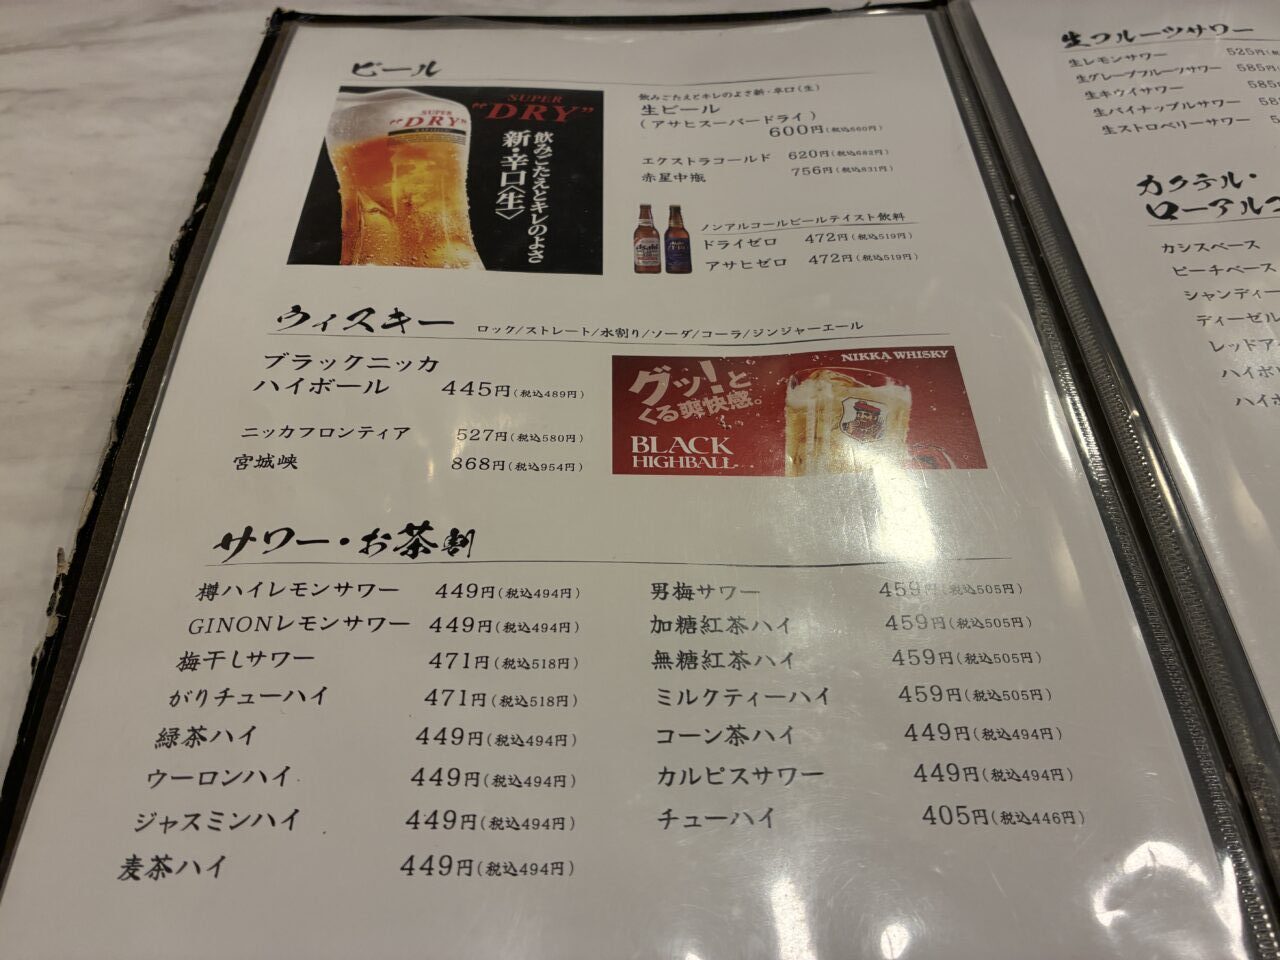 ビール
SUPER
"DRY"
SUPER
"DRY"
飲みごたえとキレのよさ
新・辛口〈生〉
飲みごたえとキレのよさ新・辛口(生)
生ビール
(アサヒスーパードライ)
600円(税込660円)
エクストラコールド 620円(税込682円)
赤星中瓶 756円(税込831円)
ノンアルコールビールテイスト飲料
ドライゼロ 472円(税込519円)
アサヒゼロ 472円(税込519円)
Asahi
ウィスキー ロック/ストレート/水割り/ソーダ/コーラ/ジンジャーエール
ブラックニッカ
ハイボール 445円(税込489円)
ニッカフロンティア 527円(税込580円)
宮城峡 868円(税込954円)
NIKKA WHISKY
グッ!と
くる爽快感。
BLACK
HIGHBALL
サワー・お茶割
樽ハイレモンサワー 449円(税込494円)
GINONレモンサワー 449円(税込494円)
梅干しサワー 471円(税込518円)
がりチューハイ 471円(税込518円)
緑茶ハイ 449円(税込494円)
ウーロンハイ 449円(税込494円)
ジャスミンハイ 449円(税込494円)
麦茶ハイ 449円(税込494円)
男梅サワー 459円(税込505円)
加糖紅茶ハイ 459円(税込505円)
無糖紅茶ハイ 459円(税込505円)
ミルクティーハイ 459円(税込505円)
コーン茶ハイ 449円(税込494円)
カルピスサワー 449円(税込494円)
チューハイ 405円(税込446円)
生フルーツサワー
生レモンサワー 525円(税
生グレープフルーツサワー 585円(
生キウイサワー 585円
生パイナップルサワー 58
生ストロベリーサワー 5
カクテル・
ローアルコ
カシスベース
ピーチベース
シャンディー
ディーゼル
レッドア
ハイボ
ハイボ